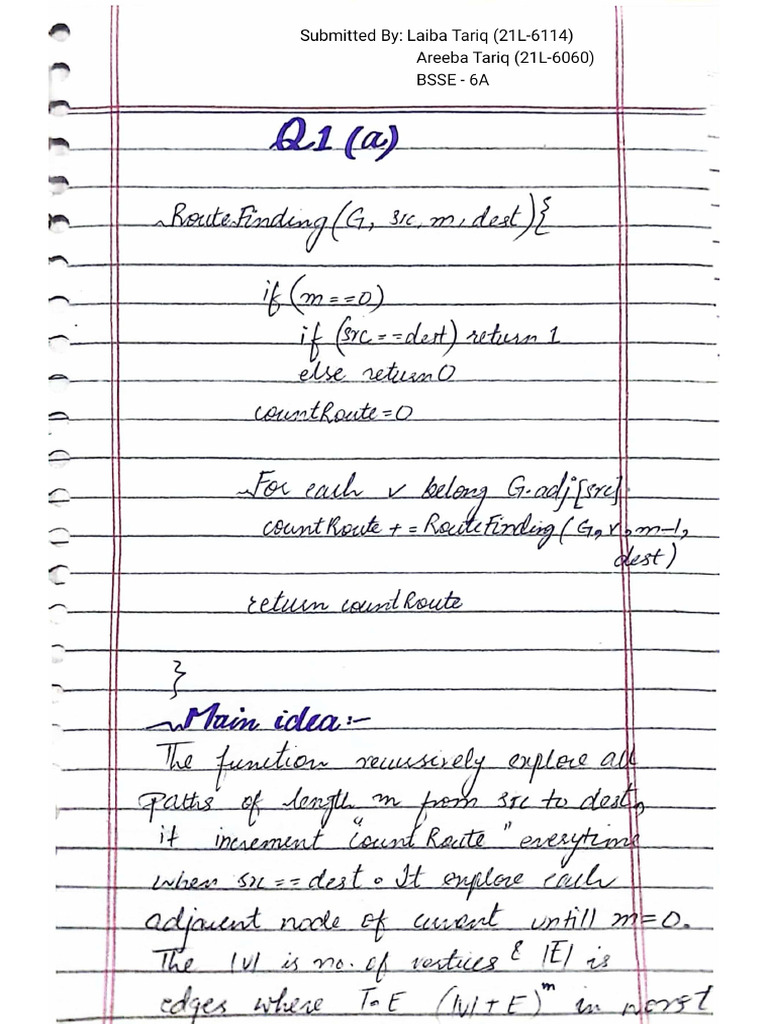 Submitted By: Laiba Tariq (21L-6114)
Areeba Tariq (21L-6060)
BSSE - 6A
Q1 (a)
RouteFinding(G, src, m, dest){
if (m==0)
if (src==dest) return 1
else return 0
countRoute=0
For each v belong G.adj[src]
countRoute += RouteFinding(G, v, m-1,
dest)
return countRoute
}
Main idea:-
The function recursively explore all
paths of length m from src to dest,
it increment "countRoute" everytime
when src == dest. It explore each
adjacent node of current untill m=0.
The |V| is no. of vertices & |E| is
edges where (|V|+E)^m in worst